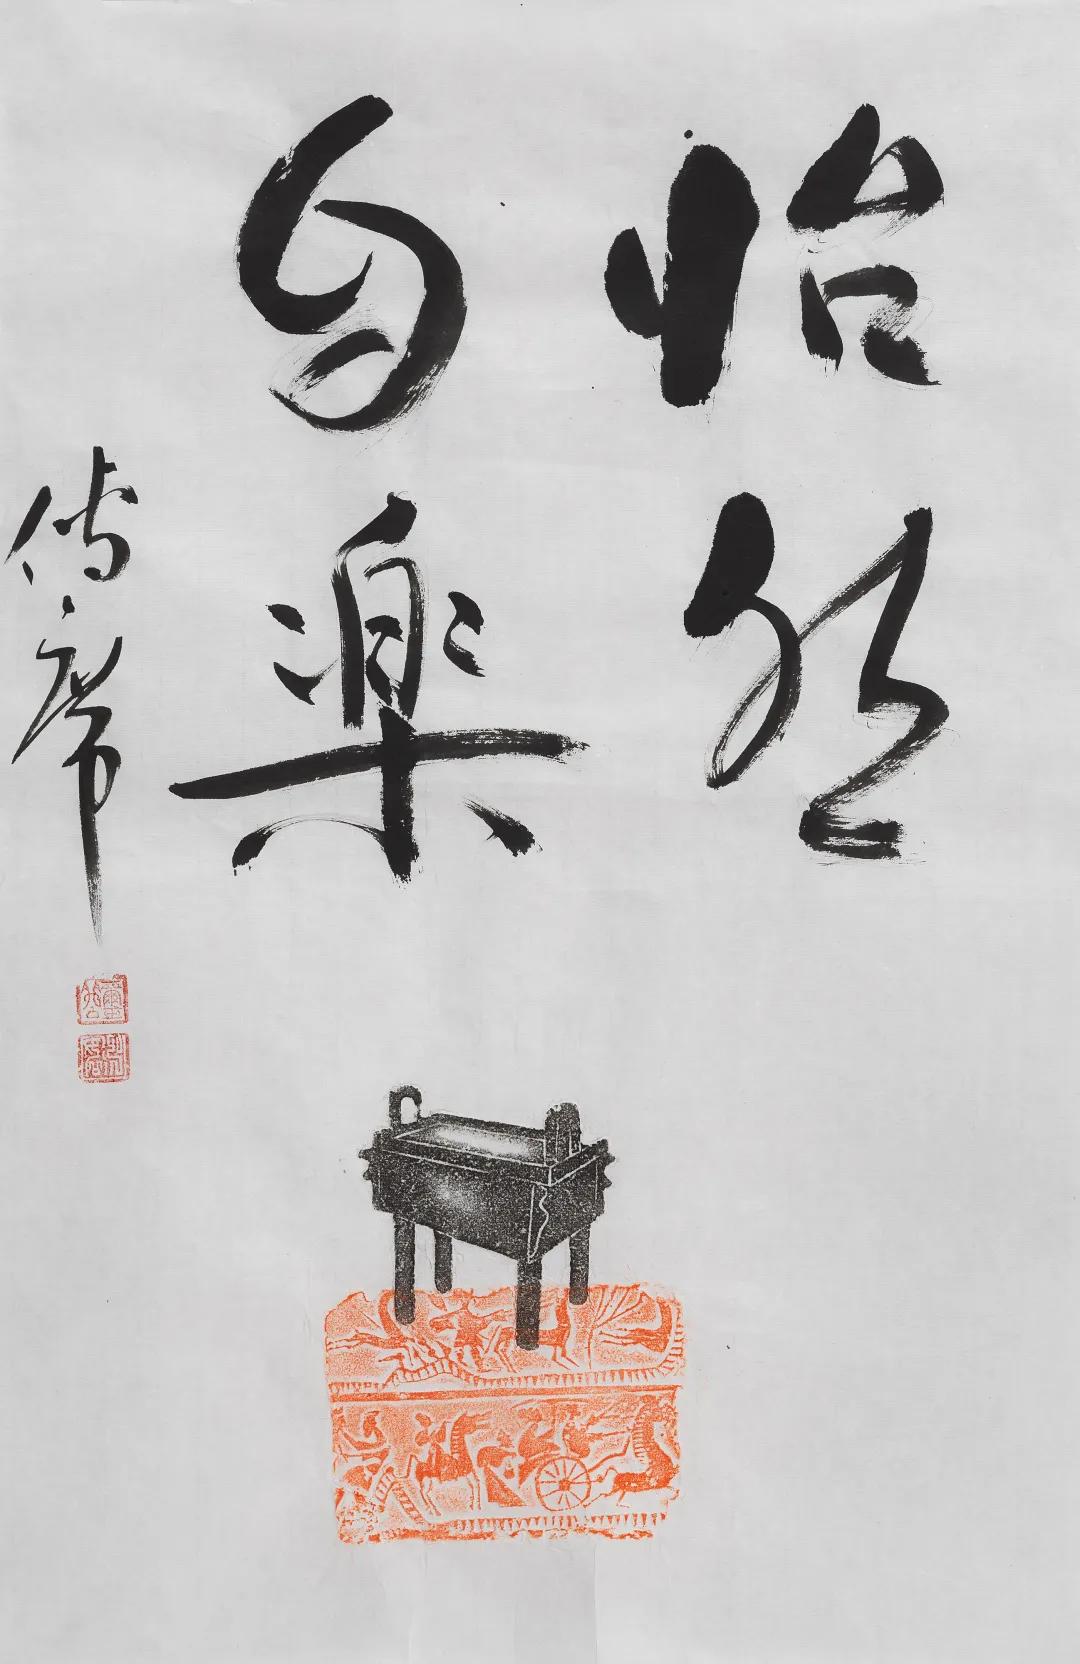 怡然
自樂
傳席